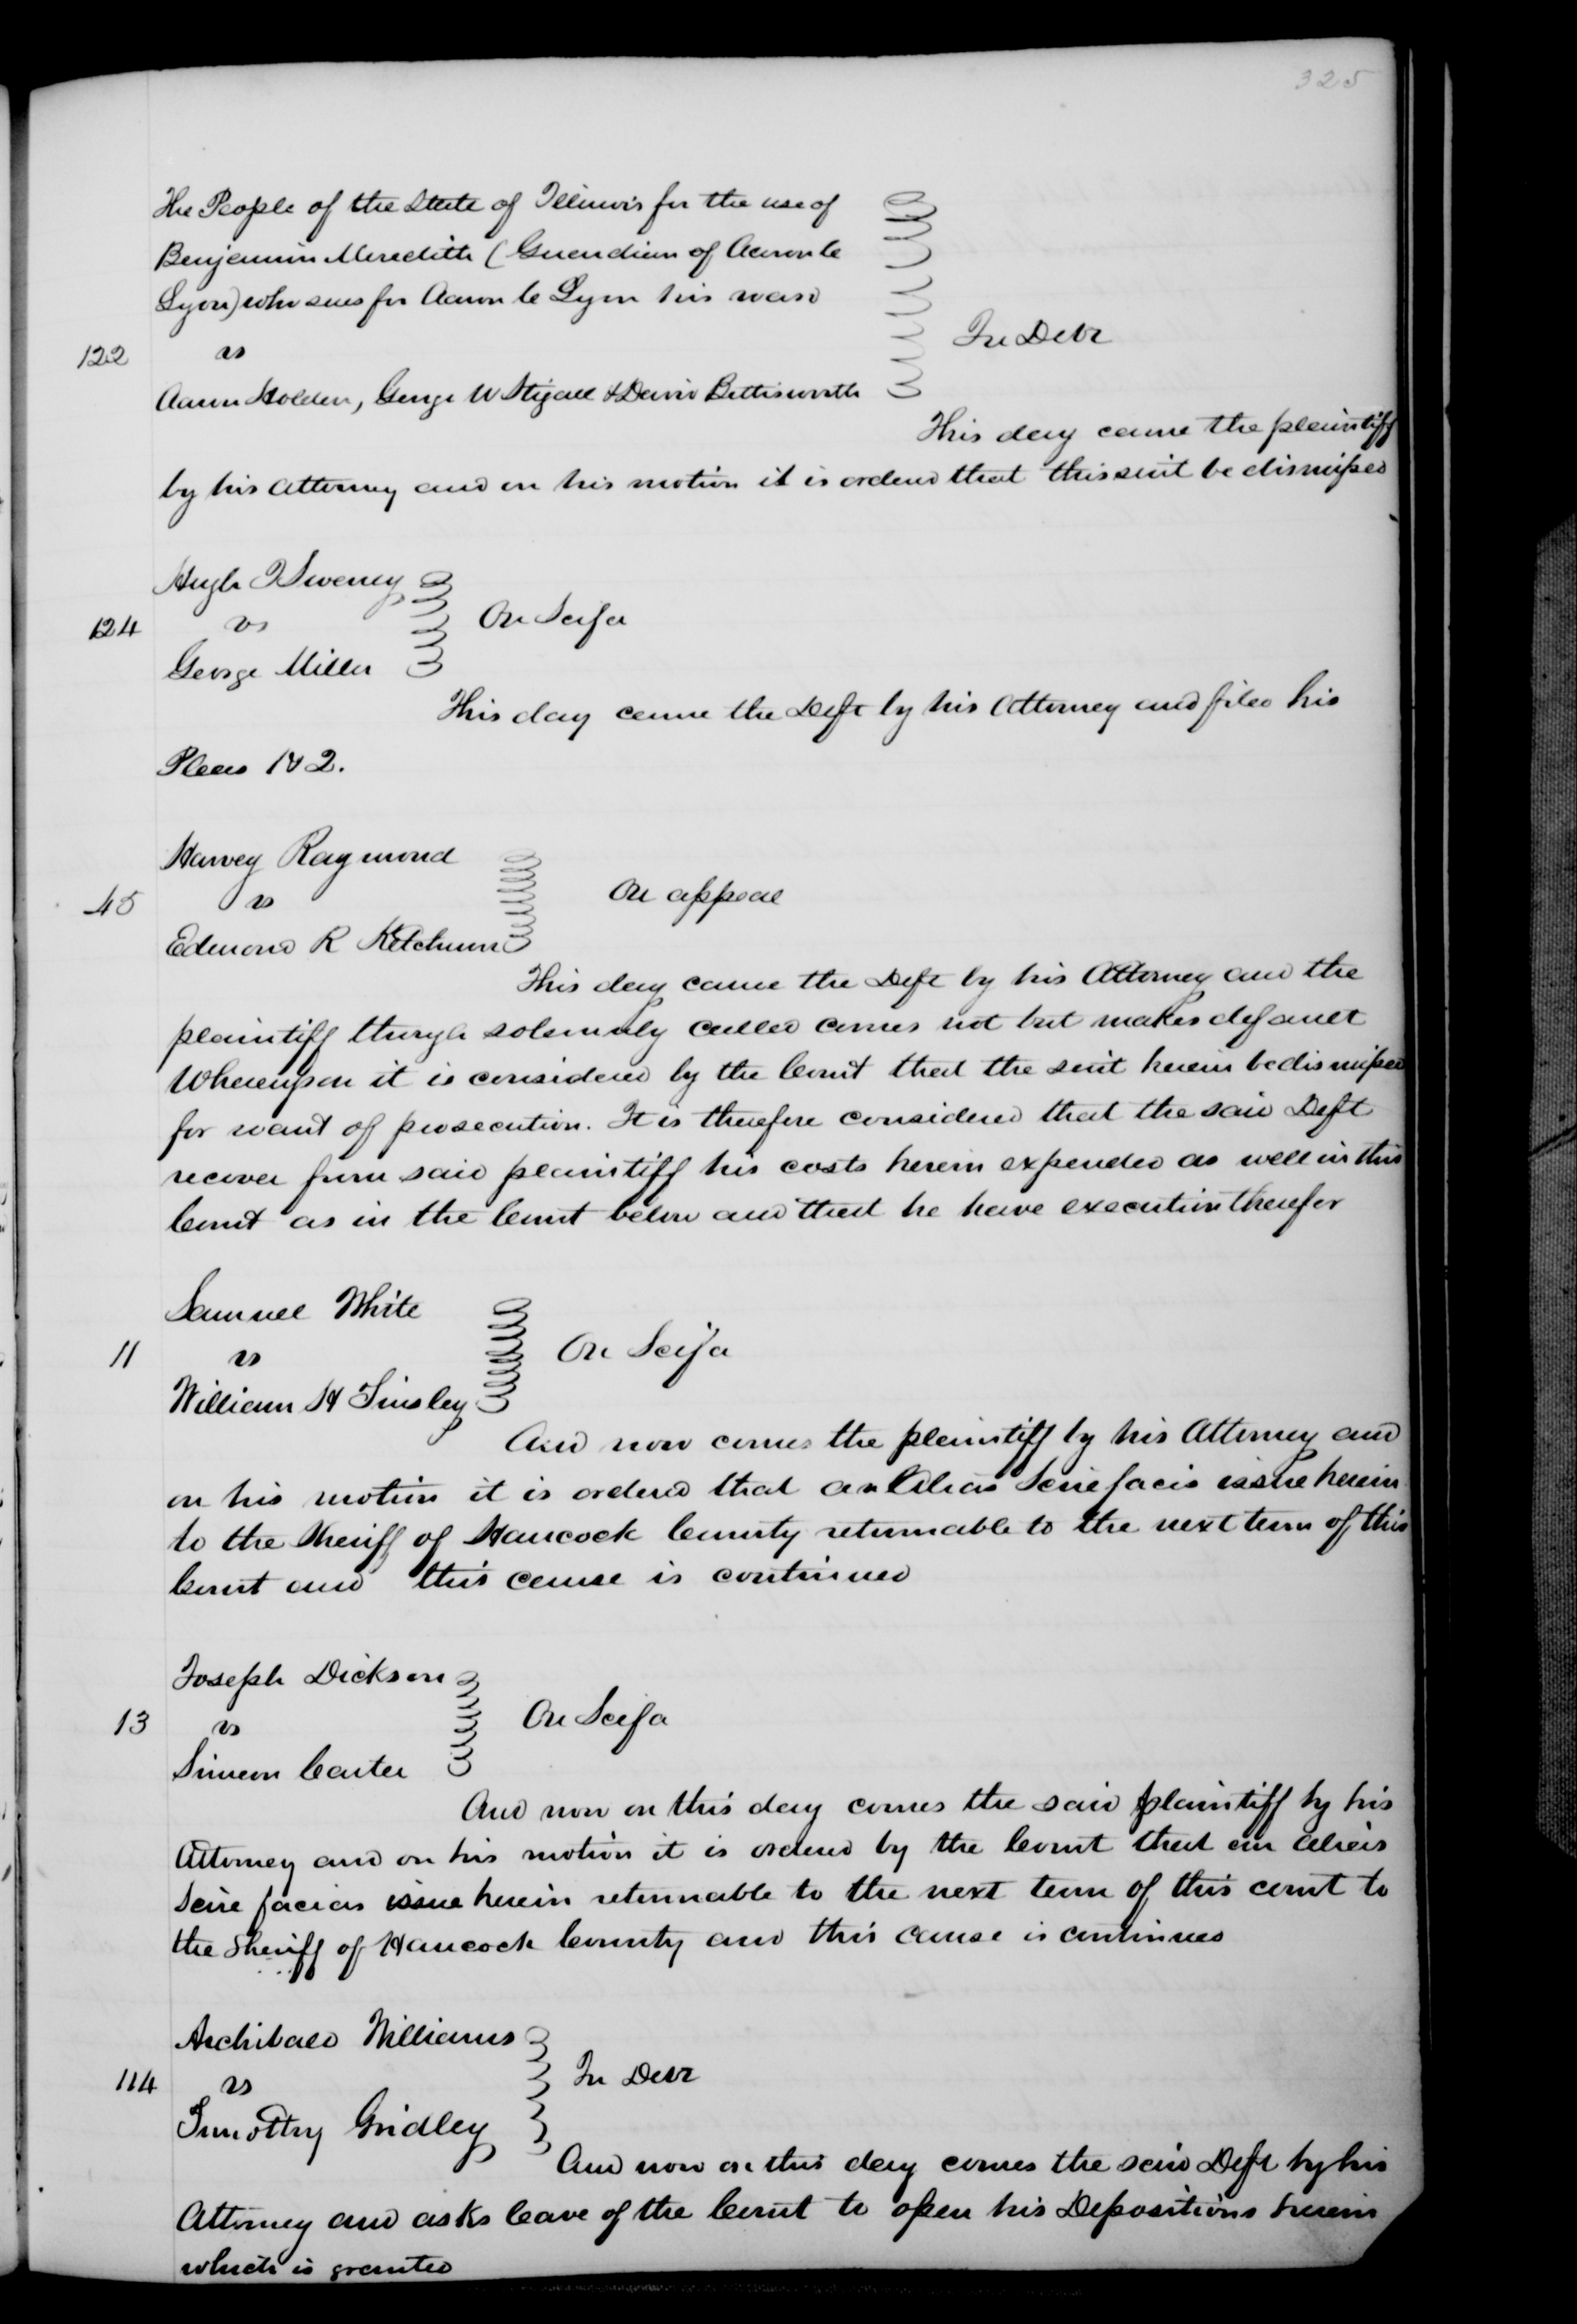 325
The People of the State of Illinois for the use of
Benjamin Meredith (Guardian of Aaron C
Lyon) who sues for Aaron C Lyon his ward
122 vs In Debt
Aaron Holden, George W Stigall & David Bettisworth
This day came the plaintiff
by his Attorney and on his motion it is ordered that this suit be dismissed
Hugh T Sweney
124 vs On Scifa
George Miller
This day came the Deft by his Attorney and filed his
Pleas 1 & 2.
Harvey Raymond
45 vs On appeal
Edmond R Ketchum
This day came the Deft by his Attorney and the
plaintiff though solemnly called comes not but makes default
Whereupon it is considered by the Court that the suit herein be dismissed
for want of prosecution. It is therefore considered that the said Deft
recover from said plaintiff his costs herein expended as well in this
Court as in the Court below and that he have execution therefor
Samuel White
11 vs On Scifa
William H Tinsley
And now comes the plaintiff by his Attorney and
on his motion it is ordered that an Alias Scire facis issue herein
to the Sheriff of Hancock County returnable to the next term of this
Court and this cause is continued
Joseph Dickson
13 vs On Scifa
Simeon Carter
And now on this day comes the said plaintiff by his
Attorney and on his motion it is ordered by the Court that an alias
Scire facias issue herein returnable to the next term of this court to
the Sheriff of Hancock County and this cause is continued
Archibald Williams
114 vs In Debt
Timothy Gridley
And now on this day comes the said Deft by his
Attorney and asks leave of the Court to open his Depositions herein
which is granted